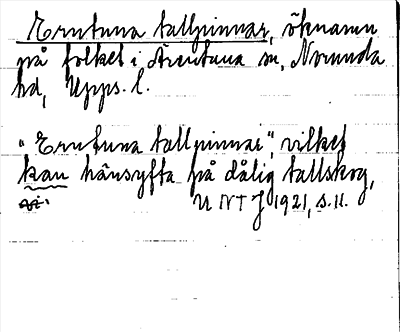 Erntuna tallpinnar, öknamn
på folket i Ärentuna sn, Norunda
hd, Upps. l.
"Erntuna tallpinnar", vilket
kan hänsyfta på dålig tallskog,
UNTJ 1921, s. 11.